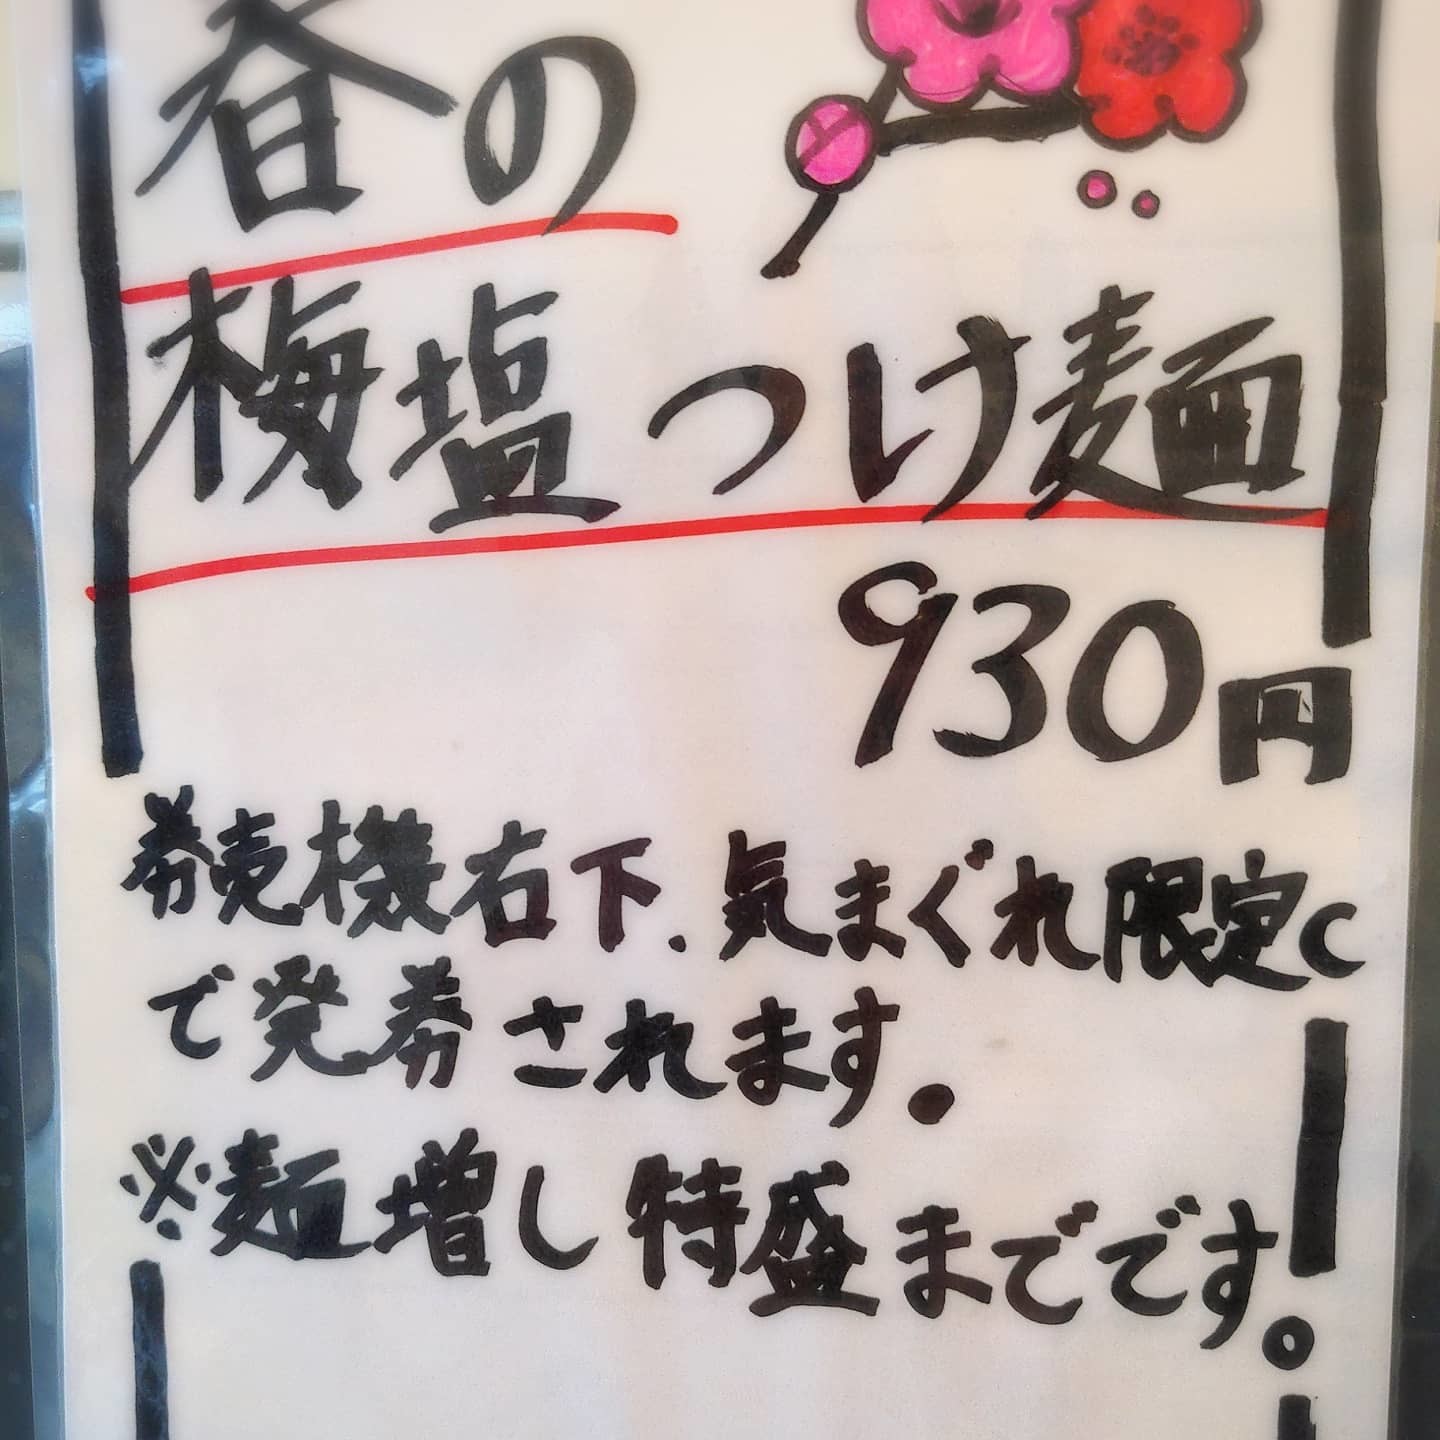 春の
梅塩つけ麺
930円
券売機右下.気まぐれ限定C
で発券されます。
※麺増し特盛までです。